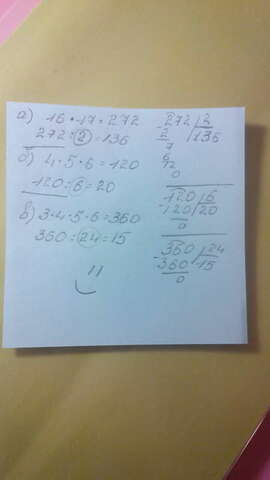 а) 16 · 17 = 272
272 : 2 = 136
б) 4 · 5 · 6 = 120
120 : 6 = 20
в) 3 · 4 · 5 · 6 = 360
360 : 24 = 15
272 | 2
- 2 | 136
7
6
12
0
120 | 6
- 120 | 20
0
360 | 24
- 360 | 15
0